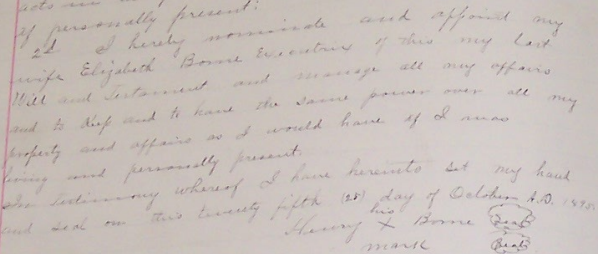 acts in
if personally present.
2d I hereby nominate and appoint my
wife Elizabeth Bome Executrix of this my last
Will and Testament and manage all my affairs
and to Keep and to have the same power over all my
property and affairs as I would have if I was
living and personally present.
In testimony whereof I have hereinto set my hand
and seal on this twenty fifth (25) day of October A.D. 1895.
his
Henry X Bome Seal
mark Seal